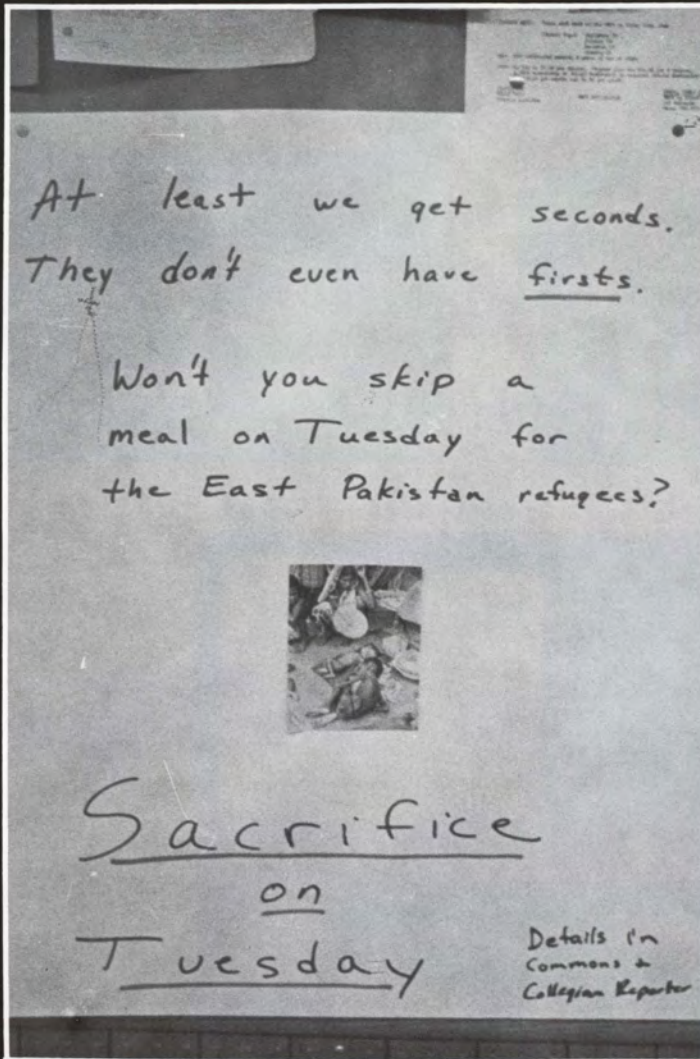 At least we get seconds.
They don't even have firsts.
Won't you skip a
meal on Tuesday for
the East Pakistan refugees?
Sacrifice
on
Tuesday
Details in
Commons +
Collegian Reporter